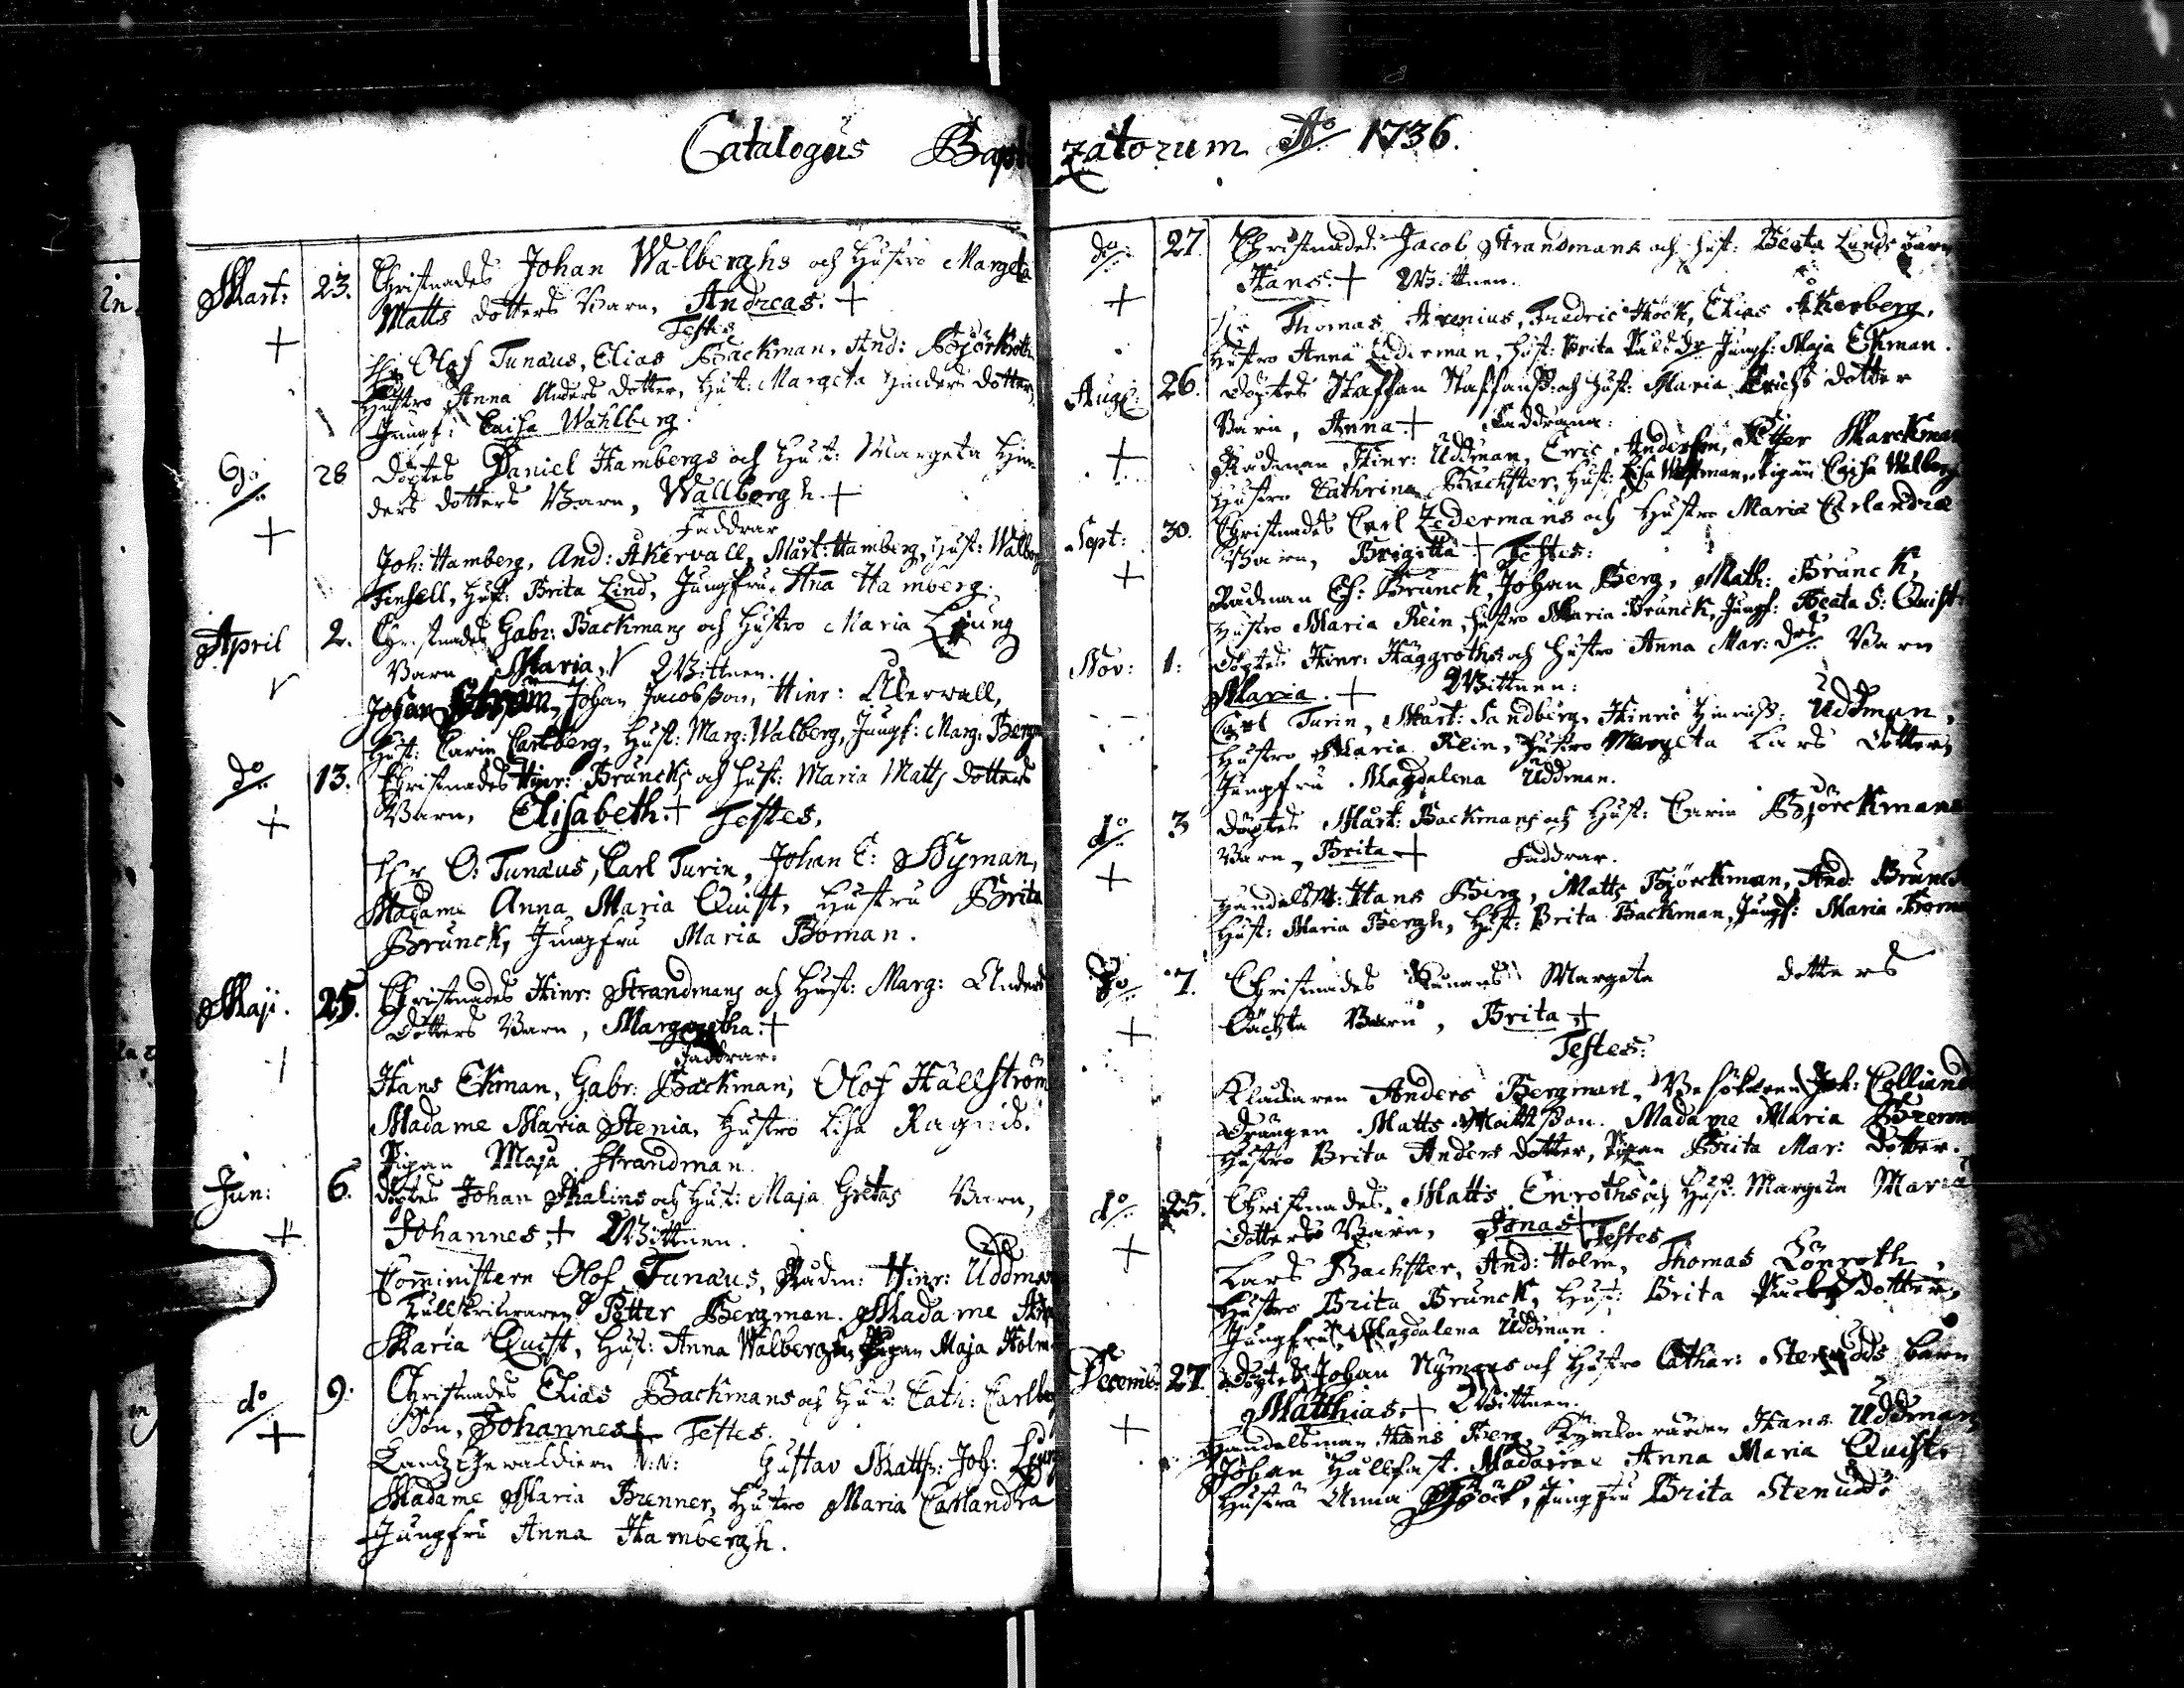 Catalogus Bapti zatorum Ao 1736.
Mart: 23. Christnades Johan Walberghs och Hustro Margeta
Matts dotters Barn, Andreas. +
+ Testes
Hr Olof Tunæus, Elias Backman, And: Björkroth
Hustro Anna Anders dotter, Hust: Margeta Hinders dotter,
Jungf: Caisa Wahlberg.
do 28 Döptes Daniel Hambergs och Hust: Margeta Hin-
ders dotters Barn, Wallborgh. +
+ Faddrar
Joh: Hamberg, And: Åkervall, Märt: Hamberg, Hust: Walborg
Finsell, Hust: Brita Lind, Jungfru Anna Hamberg.
April 2. Christnades Gabr: Backmans och Hustro Maria Ljung
Barn Maria. Wittnen.
Johan Johan Jacobsson, Hinr: Åkerwall,
Hust: Carin Carlberg, Hust: Marg: Walberg, Jungf: Marg: Bergm
do 13. Christnades Hinr: Bruncks och Hust: Maria Matts dotters
+ Barn, Elisabeth. + Testes,
Hr O: Tunæus, Carl Turin, Johan E: Nyman,
Madame Anna Maria Quist, Hustru Brita
Brunck, Jungfru Maria Boman.
Maji. 25. Christnades Hinr: Strandmans och Hust: Marg: Anders
dotters Barn, Margaretha. +
Faddrar.
Hans Ekman, Gabr: Backman, Olof Hällström
Madame Maria Stenia, Hustro Lisa
Pigan Maja Strandman.
Jun: 6. Döptes Johan Malins och Hust: Maja Gretas Barn,
+ Johannes, + Wittnen.
Comministern Olof Tunæus, Rådm: Hinr: Uddman
Tullskrifwaren Petter Bergman. Madame Anna
Maria Quist, Hust: Anna Walbergh, Pigan Maja Holm
do 9. Christnades Elias Backmans och Hust: Cath: Carlberg
+ Son, Johannes + Testes.
N: N: Gustav Matts: Joh: Ljung
Madame Maria Brenner, Hustro Maria Carlandra
Jungfru Anna Hambergh.
do 27. Christnades Jacob Strandmans och Hust: Beata Lunds barn
+ Hans. + Wittnen.
Hr Thomas Arenius, Fredric Höök, Elias Åkerberg,
Hustro Anna Liderman, Hust: Brita Jungf: Maja Ekman.
Aug: 26. Döptes Staffan Staffanss: och Hust: Maria Erichs dotter
Barn, Anna + Faddrarna:
+ Rådman Hinr: Uddman, Eric Anderson, Petter Marckman
Hustro Cathrina Bachster, Hust: Lisa Westman, Pigan Caisa Walberg
Sept: 30. Christnades Carl Zedermans och Hustro Maria Carlandræ
+ Barn, Brigitta + Testes:
Rådman Brunck, Johan Berg, Math: Brunck,
Hustro Maria Rein, Hustro Maria Brunck, Jungf: Beata S: Quist
Nov: 1: Döptes Hinr: Häggroths och Hustro Anna Mar: drs Barn
Maria. + Wittnen:
Carl Turin, Märt: Sandberg, Hinric Hinricss: Uddman,
Hustro Maria Rein, Hustro Margeta Lars dotter,
Jungfru Magdalena Uddman.
do 3 Döptes Märt: Backmans och Hust: Carin Björckmans
Barn, Brita + Faddrar.
+ Handelsm: Hans Berg, Matts Björckman, And: Brunck
Hust: Maria Bergh, Hust: Brita Backman, Jungf: Maria Boman
do 7. Christnades Kunans Margeta dotters
+ oächta Barn, Brita, +
Testes:
Klockaren Anders Bergman, Besökaren Joh: Colliand
Drängen Matts Mattsson. Madame Maria Brenner
Hustro Brita Anders dotter, Pigan Brita Mar: dotter.
do 25. Christnades Matts Enroths och Hust: Margeta Maria
dotters Barn, Jonas + Testes
+ Lars Bachster, And: Holm, Thomas Lönroth,
Hustro Brita Brunck, Hust: Brita dotter,
Jungfru Magdalena Uddman.
Decemb: 27. Döptes Johan Nymans och Hustro Cathar: Stenudds barn
+ Matthias, + Wittnen.
Handelsman Hans Berg, Kyrckowärden Hans Uddman,
Johan Hallfast. Madame Anna Maria Quist,
Hustru Anna Jungfru Brita Stenudd.